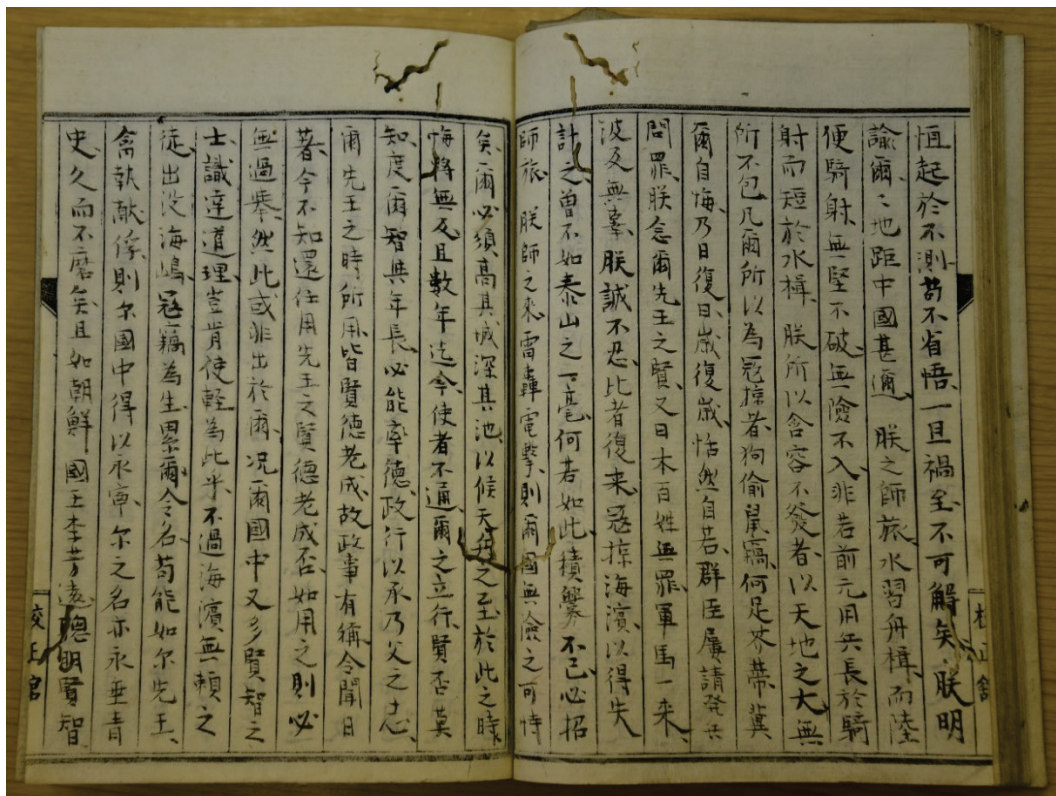 恒起於不測苟不省悟一旦禍至不可解矣朕明
諭爾〻地距中國甚邇朕之師旅水習舟楫而陸
便騎射無堅不破無險不入非若前元用兵長於騎
射而短於水楫朕所以含容不發者以天地之大無
所不包凡爾所以為冦掠者狗偷鼠竊何足芥蒂冀
爾自悔乃日復日歲復歲恬然自若群臣屢請發兵
問罪朕念爾先王之賢又日木百姓無罪軍馬一来
波及無辜朕誠不忍比者復来冦掠海濱以得失
計之曾不如泰山之一毫何若如此積釁不已必招
師旅朕師之来雷轟電擊則爾國無險之可恃
矣爾必須高其城深其池以候天兵之至於此之時
悔将無及且数年迄今使者不通爾之立行賢否莫
知度爾智與年長必能率德政行以承乃父之志
爾先王之時所用皆賢徳老成故政事有稱令聞日
著今不知還任用先王之賢德老成否如用之則必
無過舉然此或非出於爾况爾國中又多賢智之
士識達道理豈肯使輕為此乎不過海濱無頼之
徒出没海嶋冦竊為生累爾令名苟能如尔先王
禽執献俘則尔國中得以永寧尔之名亦永垂青
史久而不磨矣且如朝鮮國王李芳遠聰明賢智
校正舘